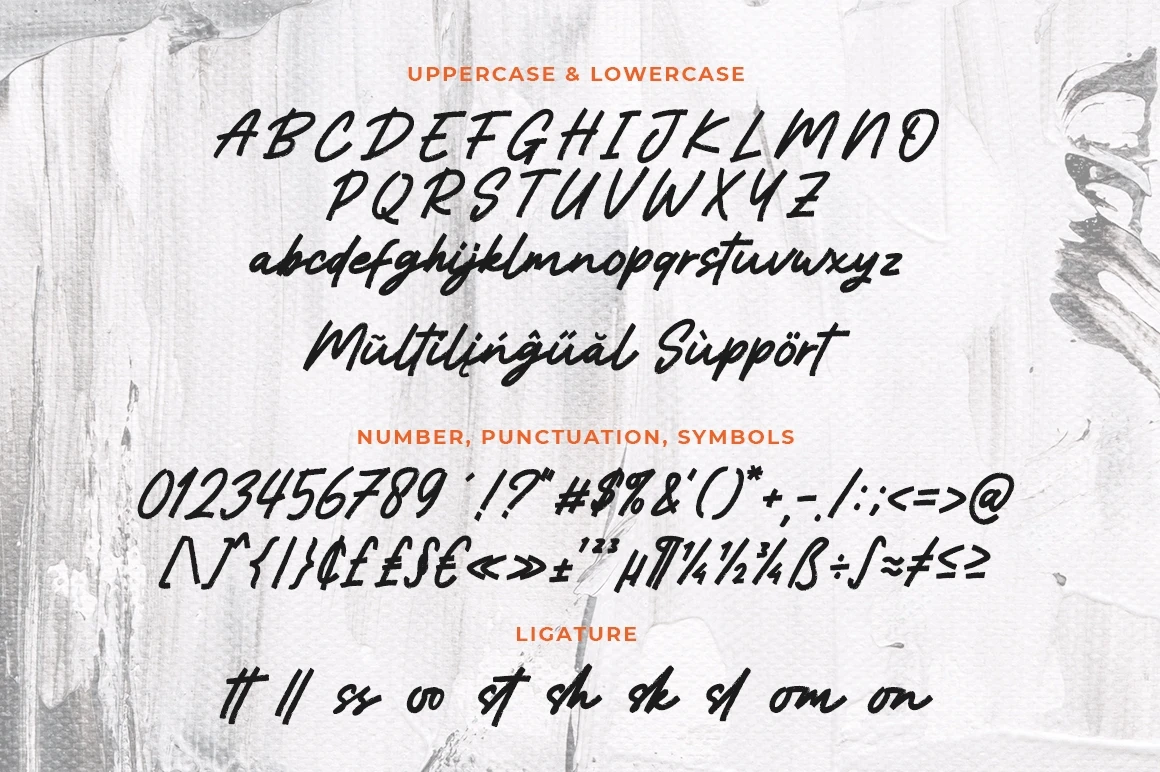 UPPERCASE & LOWERCASE
ABCDEFGHIJKLMNO
PQRSTUVWXYZ
abcdefghijklmnopqrstuvwxyz
Mŭltílįńĝűăl Sùppört
NUMBER, PUNCTUATION, SYMBOLS
0123456789 ´!?"#$%&'()*+,-./:;<=>@
[\]^{|}¢£₤§€«»±¹²³µ¶¼½¾ß÷∫≈≠≤≥
LIGATURE
tt ll ss oo st sh sk sl om on